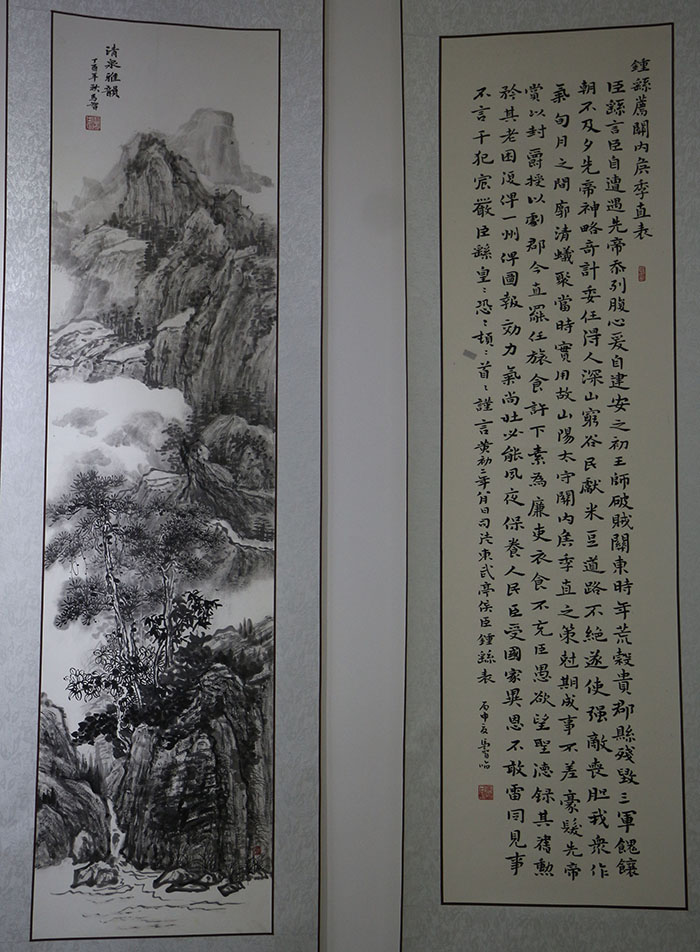 鍾繇薦關內侯季直表
臣繇言臣自遭遇先帝忝列腹心爰自建安之初王師破賊關東時年荒穀貴郡縣殘毀三軍餽饟
朝不及夕先帝神略奇計委任得人深山窮谷民獻米豆道路不絕遂使强敵喪胆我衆作
氣旬月之間廓清蟻聚當時實用故山陽太守關內侯季直之策尅期成事不差豪髮先帝
賞以封爵授以劇郡今直罷任旅食許下素為廉吏衣食不充臣愚欲望聖德録其舊勳
矜其老困復俾一州俾圖報効力氣尚壯必能夙夜保養人民臣受國家異恩不敢雷同見事
不言干犯宸嚴臣繇皇〻恐〻頓〻首〻謹言黄初二年八月日司徒東武亭侯臣鍾繇表
丙申夏馬智临
清泉雅韻
丁酉年秋馬智